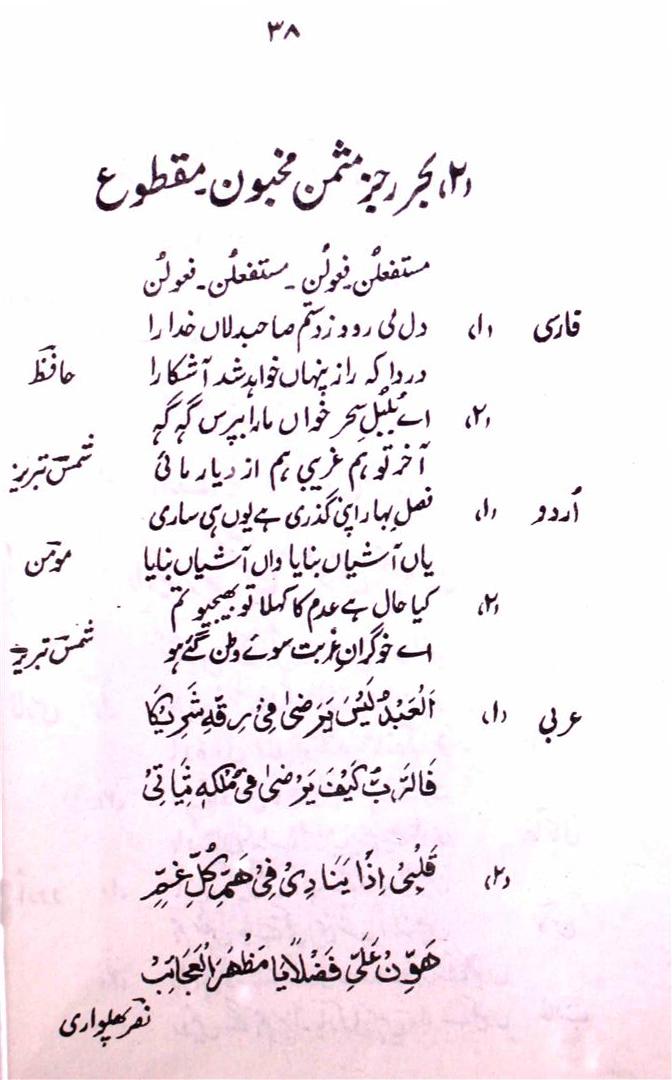 ۳۸
(۲) بحر رجز مثمن مخبون۔ مقطوع
مستفعلن فعولن ۔ مستفعلن۔ فعولن
فارسی (۱) دل می رود ز دستم صاحبدلاں خدا را
دردا کہ راز پنہاں خواہد شد آشکارا حافظؔ
(۲) اے بُلبُلِ سحر خواں مارا بپرس گہ گہ
آخر تو ہم غریبی ہم از دیار مائی شمسؔ تبریز
اُردو (۱) فصلِ بہار اپنی گذری ہے یوں ہی ساری
یاں آشیاں بنایا واں آشیاں بنایا مومنؔ
(۲) کیا حال ہے عدم کا کہلا تو بھیجیو تم
اے خوگرانِ غُربت سوئے وطن گئے ہو شمسؔ تبریز
عربی (۱) اَلْعَبْدُ لَیْسَ یَرْضیٰ فِیْ رِقِّہٖ شَرِیْکًا
فَالرَّبُّ کَیْفَ یَرْضیٰ فِیْ مُلْکِہٖ بِثَانِیْ
(۲) قَلْبِیْ اِذًا یُنَادِیْ فِیْ ھَمِّ کُلِّ غَمٍّ
ھَوِّنْ عَلَیَّ فَضْلًا یَا مَظْھَرَ الْعَجَائِبْ
نصرؔ پھلواری